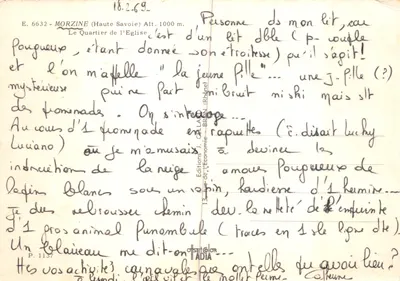 18.2.69
E. 6632 - MORZINE (Haute Savoie) Alt. 1000 m.
Le Quartier de l'Eglise
Personne ds mon lit, car
c'est d'un lit dble (p. couple
fougueux, étant donnée son étroitesse) qu'il s'agit!
et l'on m'appelle "la jeune fille"... une j. fille (?)
mystérieuse qui ne fait ni bruit ni ski mais st
des promenades. On s'interroge...
Au cours d'1 promenade en raquettes (c. disait Lucky
Luciano) où je m'amusais à deviner les
indiscrétions de la neige amours fougueux de
lapins blancs sous un sapin, hardiesse d'1 hermine...
je dus rebrousser chemin dev. la netteté de l'empreinte
d'1 gros animal funambule (traces en 1 sle ligne dte).
Un blaireau me dit-on...
P. 1137
Mes vos activités carnavalesques ont elles qu avoir lieu?
à lundi